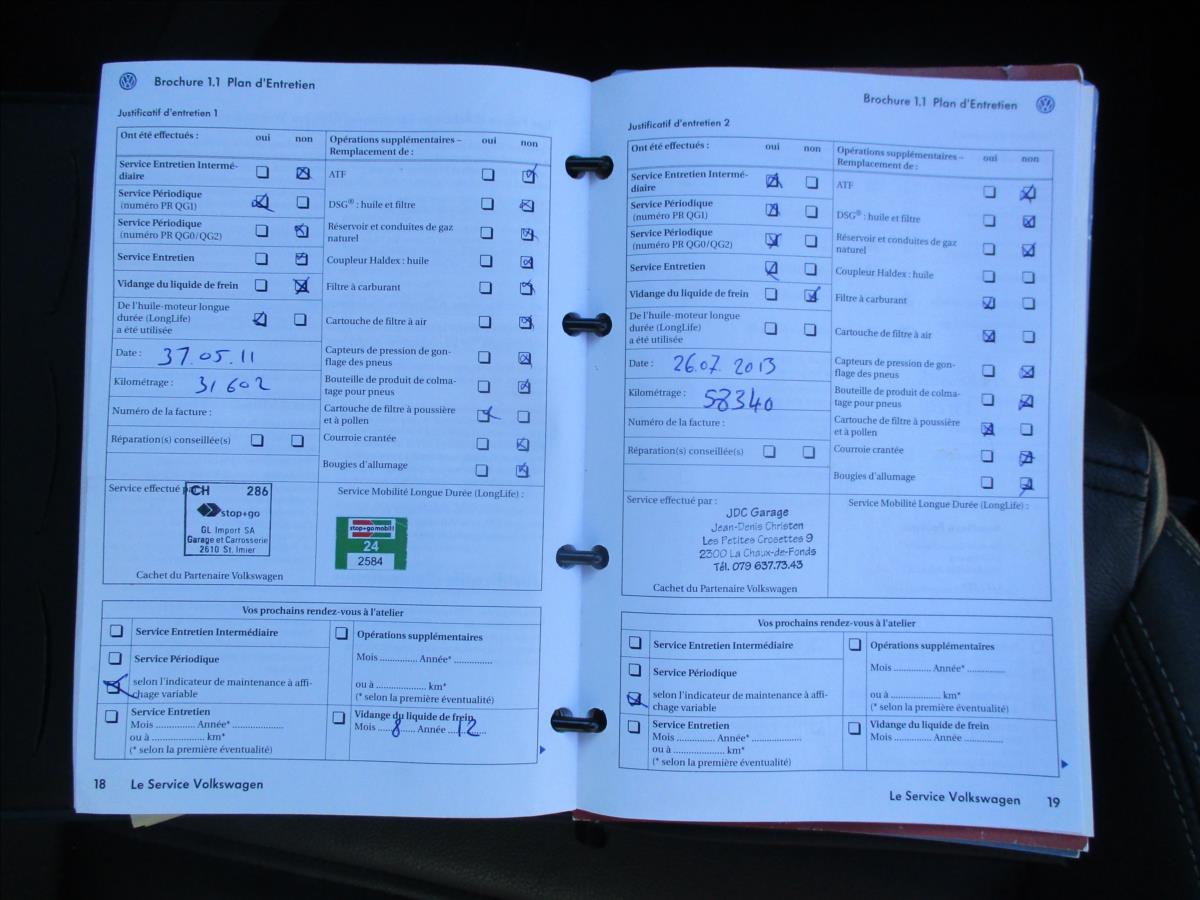 Brochure 1.1 Plan d'Entretien
Justificatif d'entretien 1
Ont été effectués : oui non
Service Entretien Intermé-
diaire
Service Périodique
(numéro PR QG1)
Service Périodique
(numéro PR QG0/QG2)
Service Entretien
Vidange du liquide de frein
De l'huile-moteur longue
durée (LongLife)
a été utilisée
Date : 37.05.11
Kilométrage : 31 602
Numéro de la facture :
Réparation(s) conseillée(s)
Opérations supplémentaires –
Remplacement de : oui non
ATF
DSG® : huile et filtre
Réservoir et conduites de gaz
naturel
Coupleur Haldex : huile
Filtre à carburant
Cartouche de filtre à air
Capteurs de pression de gon-
flage des pneus
Bouteille de produit de colma-
tage pour pneus
Cartouche de filtre à poussière
et à pollen
Courroie crantée
Bougies d'allumage
Service effectué
CH 286
stop+go
GL Import SA
Garage et Carrosserie
2610 St. Imier
Cachet du Partenaire Volkswagen
Service Mobilité Longue Durée (LongLife) :
stop+go mobil
24
2584
Vos prochains rendez-vous à l'atelier
Service Entretien Intermédiaire
Service Périodique
selon l'indicateur de maintenance à affi-
chage variable
Service Entretien
Mois .............. Année* ..................
ou à ........................ km*
(* selon la première éventualité)
Opérations supplémentaires
Mois .............. Année* ..............
ou à ........................ km*
(* selon la première éventualité)
Vidange du liquide de frein
Mois 8 Année 12
18 Le Service Volkswagen
Brochure 1.1 Plan d'Entretien
Justificatif d'entretien 2
Ont été effectués : oui non
Service Entretien Intermé-
diaire
Service Périodique
(numéro PR QG1)
Service Périodique
(numéro PR QG0/QG2)
Service Entretien
Vidange du liquide de frein
De l'huile-moteur longue
durée (LongLife)
a été utilisée
Date : 26.07. 2013
Kilométrage : 58340
Numéro de la facture :
Réparation(s) conseillée(s)
Opérations supplémentaires –
Remplacement de : oui non
ATF
DSG® : huile et filtre
Réservoir et conduites de gaz
naturel
Coupleur Haldex : huile
Filtre à carburant
Cartouche de filtre à air
Capteurs de pression de gon-
flage des pneus
Bouteille de produit de colma-
tage pour pneus
Cartouche de filtre à poussière
et à pollen
Courroie crantée
Bougies d'allumage
Service effectué par :
JDC Garage
Jean-Denis Christen
Les Petites Crosettes 9
2300 La Chaux-de-Fonds
Tél. 079 637.73.43
Cachet du Partenaire Volkswagen
Service Mobilité Longue Durée (LongLife) :
Vos prochains rendez-vous à l'atelier
Service Entretien Intermédiaire
Service Périodique
selon l'indicateur de maintenance à affi-
chage variable
Service Entretien
Mois .............. Année* ..................
ou à ........................ km*
(* selon la première éventualité)
Opérations supplémentaires
Mois .............. Année* ..............
ou à ........................ km*
(* selon la première éventualité)
Vidange du liquide de frein
Mois .............. Année ..............
Le Service Volkswagen 19